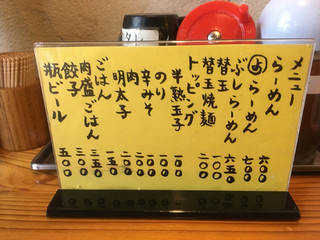 メニュー
らーめん 六〇〇
よらーめん 七〇〇
ぶしらーめん 六五〇
替玉 一〇〇
替玉焼麺 二〇〇
トッピング
半熟玉子 一〇〇
のり 一〇〇
辛みそ 一〇〇
肉 二〇〇
明太子 二〇〇
ごはん 一五〇
肉盛ごはん 三五〇
餃子 三〇〇
瓶ビール 五〇〇